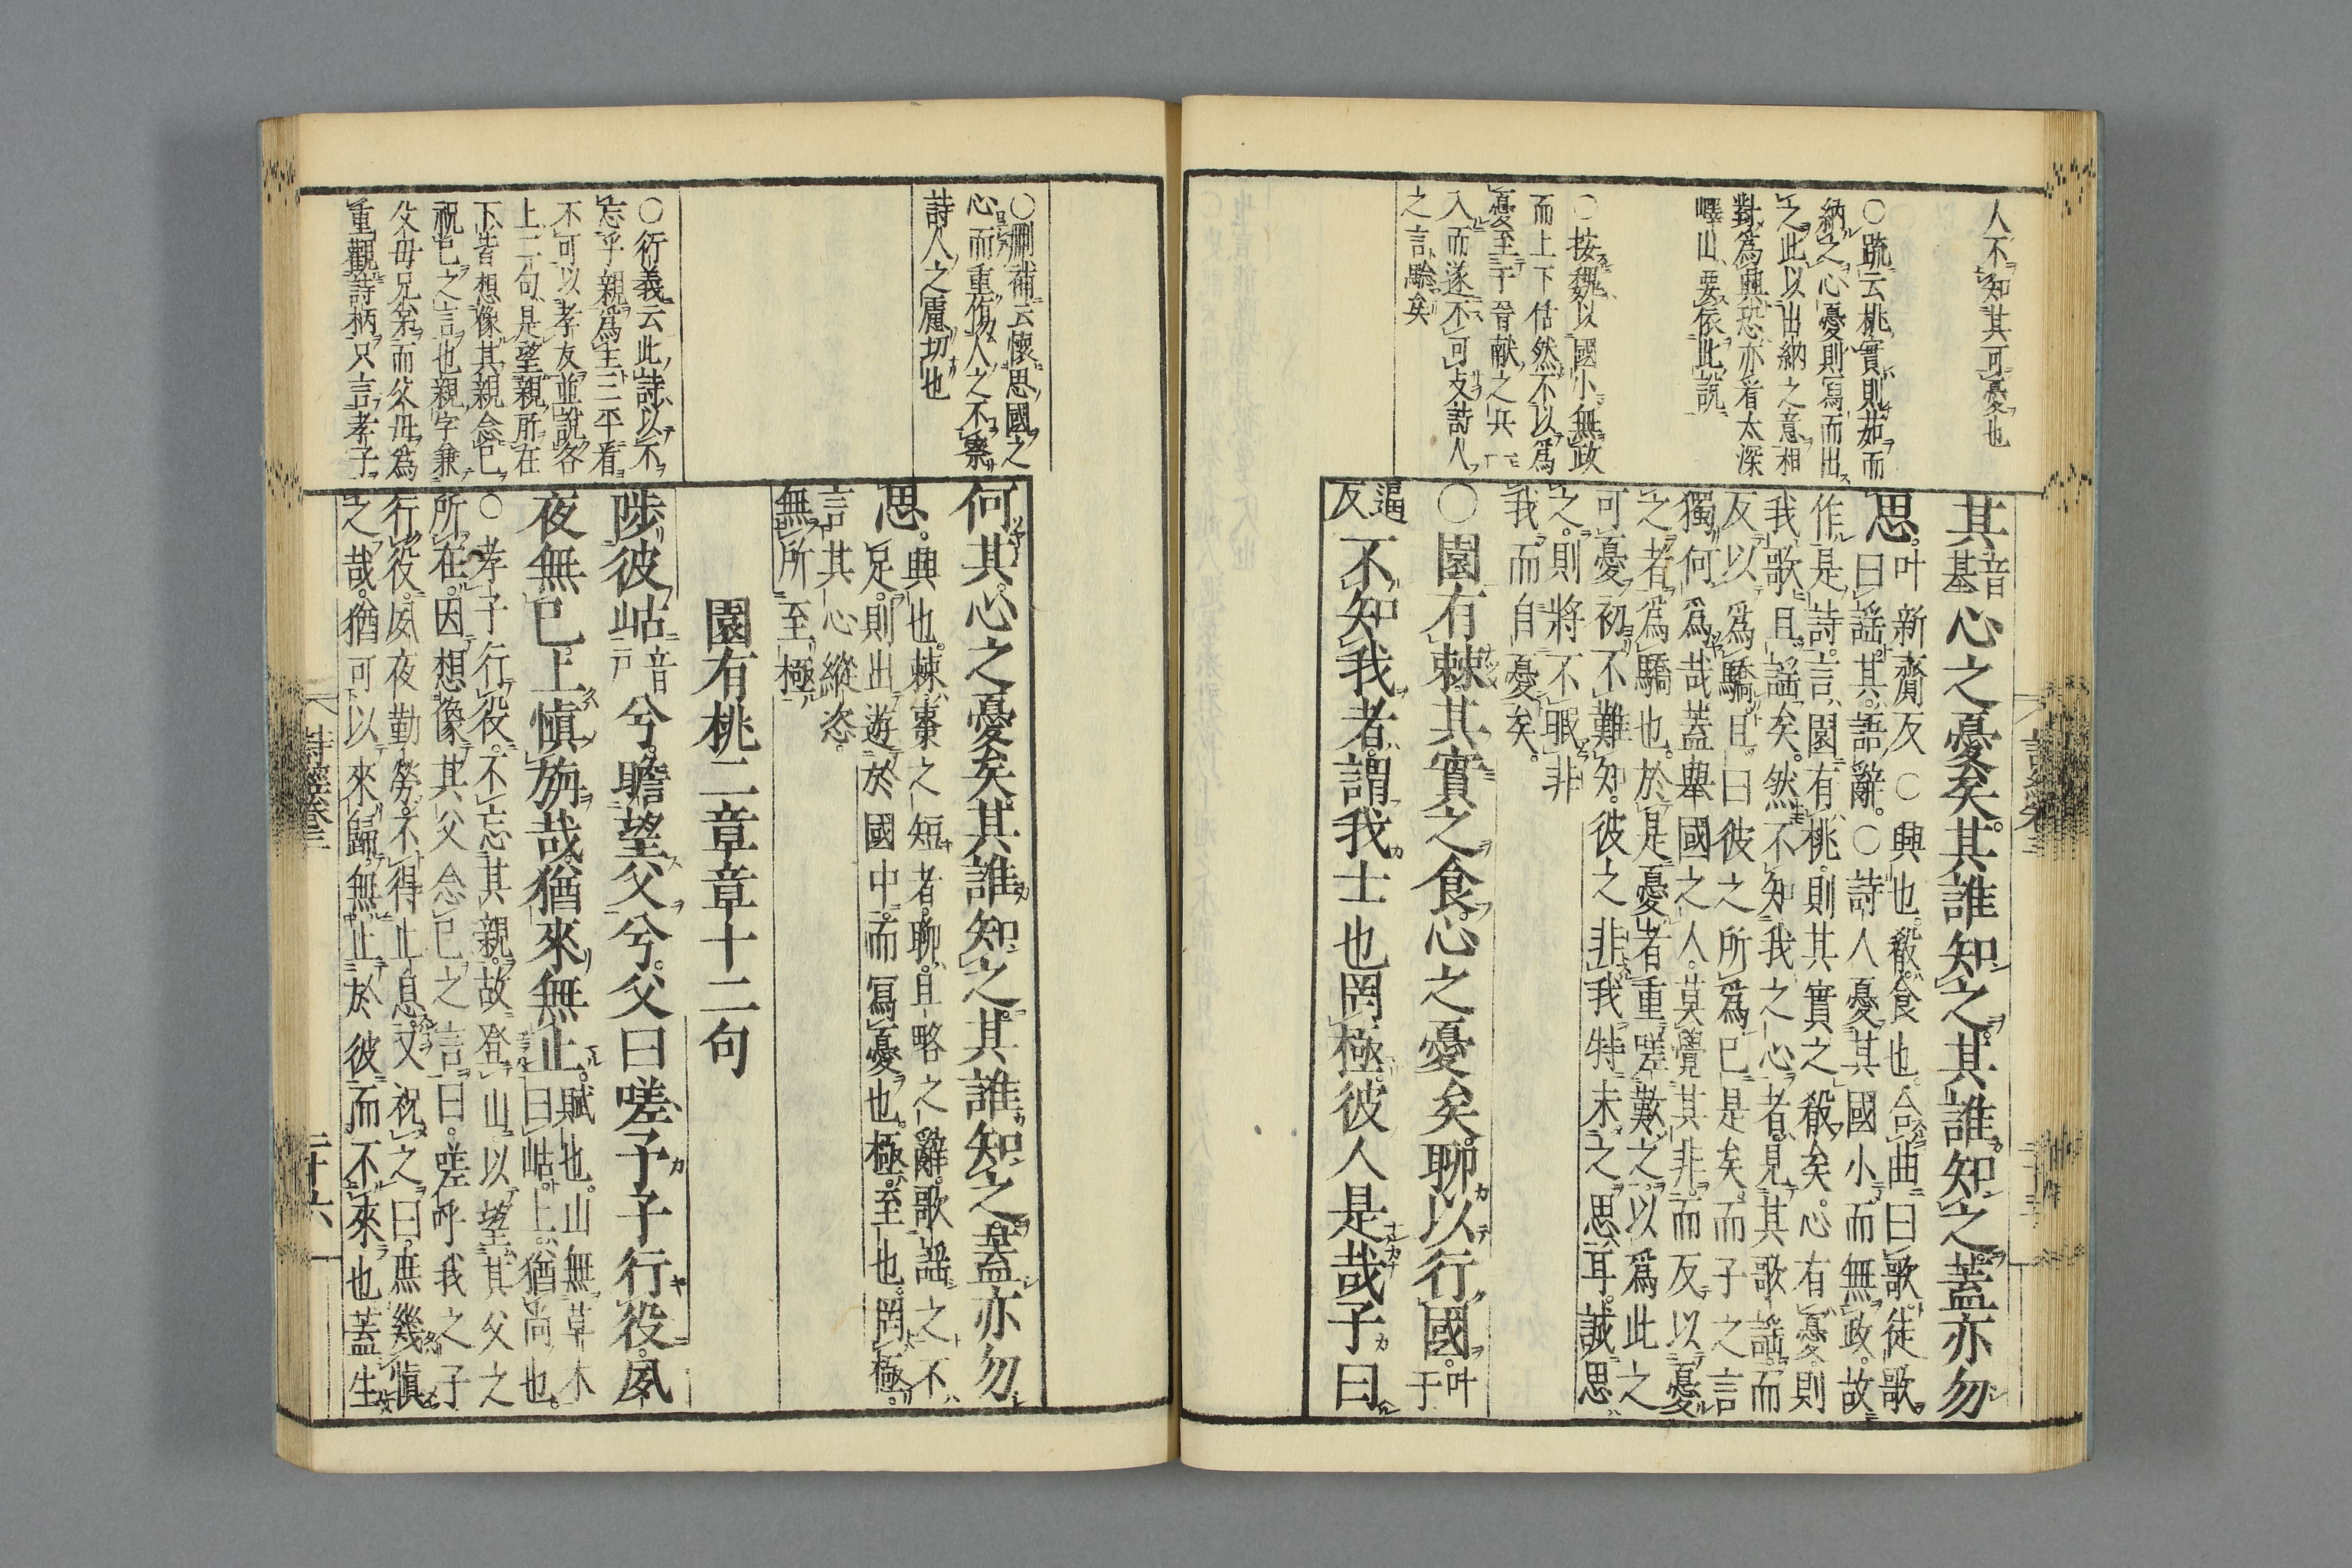 人不知其可憂也
○疏云桃實則茹而
納之心憂則寫而出
之此以出納之意相
對爲興恐亦看太深
嶧山要依此說
○按魏以國小無政
而上下恬然不以爲
憂至于晉獻之兵一
入而遂不可支詩人
之言驗矣
其基音心之憂矣其誰知之其誰知之蓋亦勿
思叶新齎反○興也殽食也合曲曰歌徒歌
曰謠其語辭○詩人憂其國小而無政故
作是詩言園有桃則其實之殽矣心有憂則
我歌且謠矣然不知我之心者見其歌謠而
反以爲驕且曰彼之所爲已是矣而子之言
獨何爲哉蓋舉國之人莫覺其非而反以憂
之者爲驕也於是憂者重嗟歎之以爲此之
可憂初不難知彼之非我特未之思耳誠思
之則將不暇非
我而自憂矣
○園有棘其實之食心之憂矣聊以行國叶于
逼反不知我者謂我士也罔極彼人是哉子曰
○刪補云懷思國之
心而重傷人之不察
詩人之慮切也
○衍義云此詩以不
忘乎親爲主三平看
不可以孝友並說各
上二句是望親所在
下皆想像其親念己
祝己之言也親字兼
父母兄弟而父母爲
重觀詩柄只言孝子
何其心之憂矣其誰知之其誰知之蓋亦勿
思興也棘棗之短者聊且略之辭歌謠之不
足則出遊於國中而寫憂也極至也罔極
言其心縱恣
無所至極
園有桃二章章十二句
陟彼岵音戶兮瞻望父兮父曰嗟予子行役夙
夜無已上愼旃哉猶來無止賦也山無草木
曰岵上猶尚也
○孝子行役不忘其親故登山以望其父之
所在因想像其父念己之言曰嗟呼我之子
行役夙夜勤勞不得止息又祝之曰庶幾愼
之哉猶可以來歸無止於彼而不來也蓋生
詩經卷三
二十六